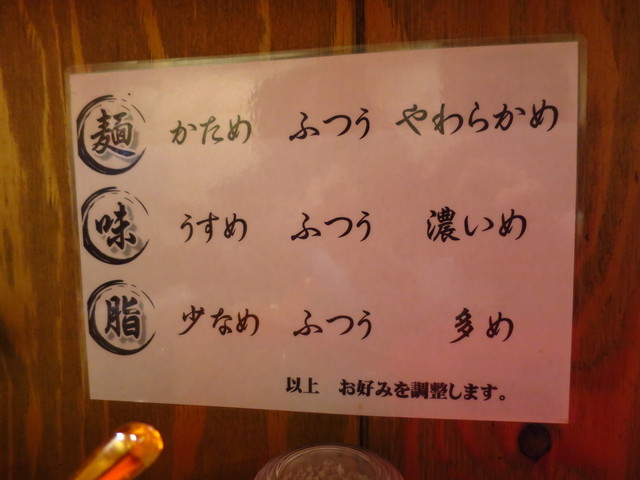 麺 かため ふつう やわらかめ
味 うすめ ふつう 濃いめ
脂 少なめ ふつう 多め
以上 お好みを調整します。